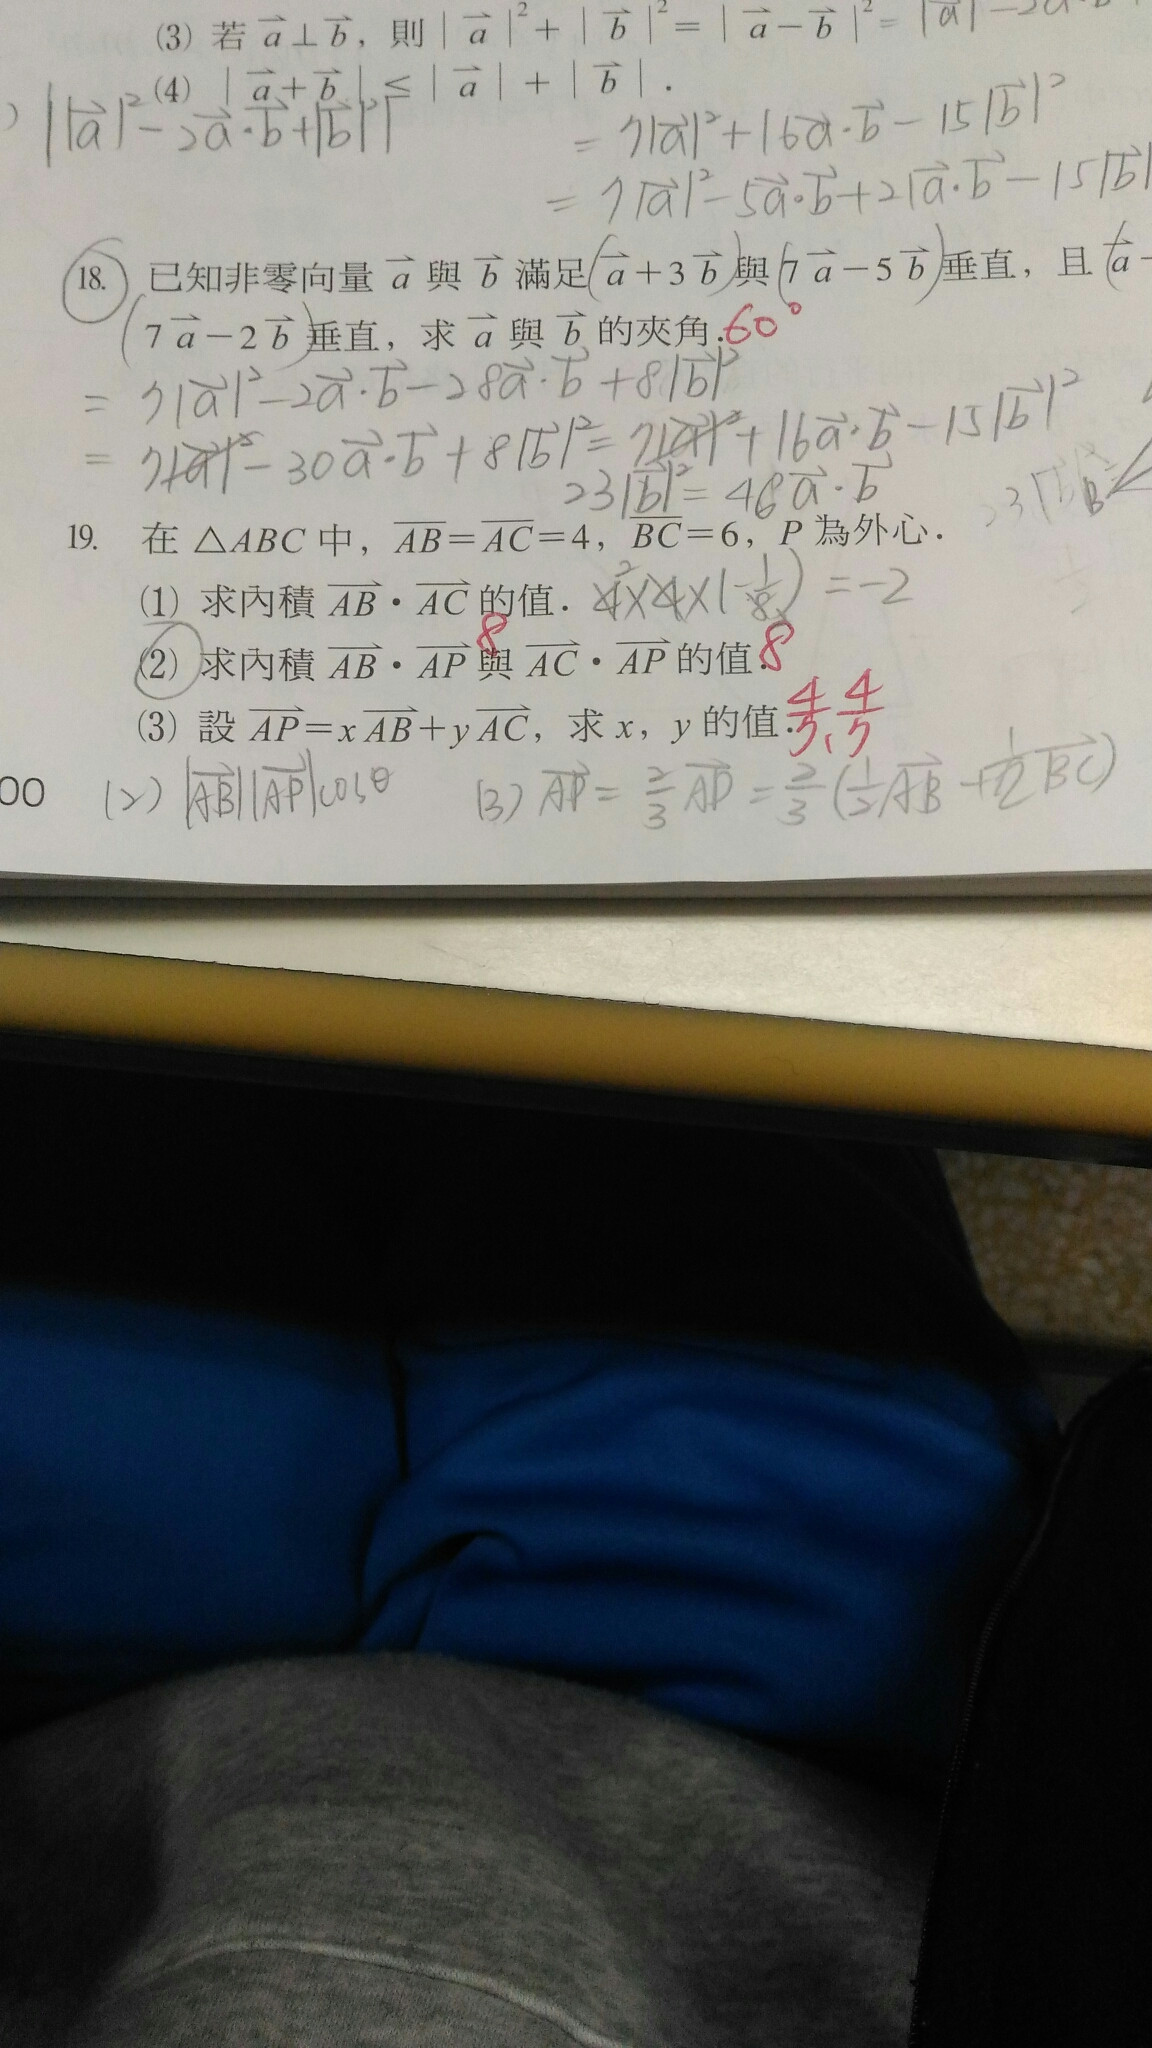 (3) 若 a⊥b, 則 | a |² + | b |² = | a−b |² = |a| − 2a·b
(4) | a+b | ≤ | a | + | b | .
) ||a|² − 2a·b + |b|²|
= 7|a|² + 16a·b − 15|b|²
= 7|a|² − 5a·b + 21a·b − 15|b|
18. 已知非零向量 a 與 b 滿足(a+3b)與(7a−5b)垂直, 且(a−
(7a−2b)垂直, 求 a 與 b 的夾角. 60°
= 7|a|² − 2a·b − 28a·b + 8|b|²
= 7|a|² − 30a·b + 8|b|² = 7|a|² + 16a·b − 15|b|²
23|b|² = 46a·b
19. 在 △ABC 中, AB=AC=4, BC=6, P 為外心.
(1) 求內積 AB·AC 的值. 4×4×(−1/8) = −2
(2) 求內積 AB·AP 8 與 AC·AP 的值. 8
(3) 設 AP=xAB+yAC, 求 x, y 的值. 4/7, 4/7
00 (2) |AB||AP|cosθ (3) AP = 2/3 AD = 2/3 (1/2 AB + 1/2 BC)